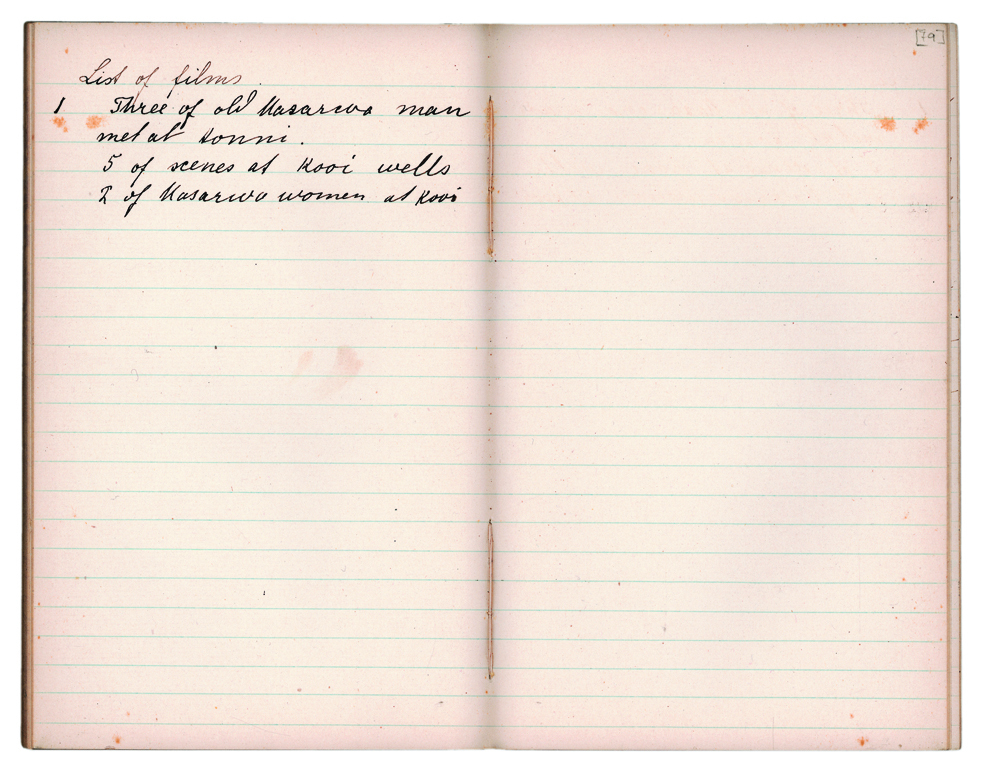 List of films.
1 Three of old Masarwa man
met at Konni.
5 of scenes at Kooi wells
2 of Masarwa women at Kooi
[79]